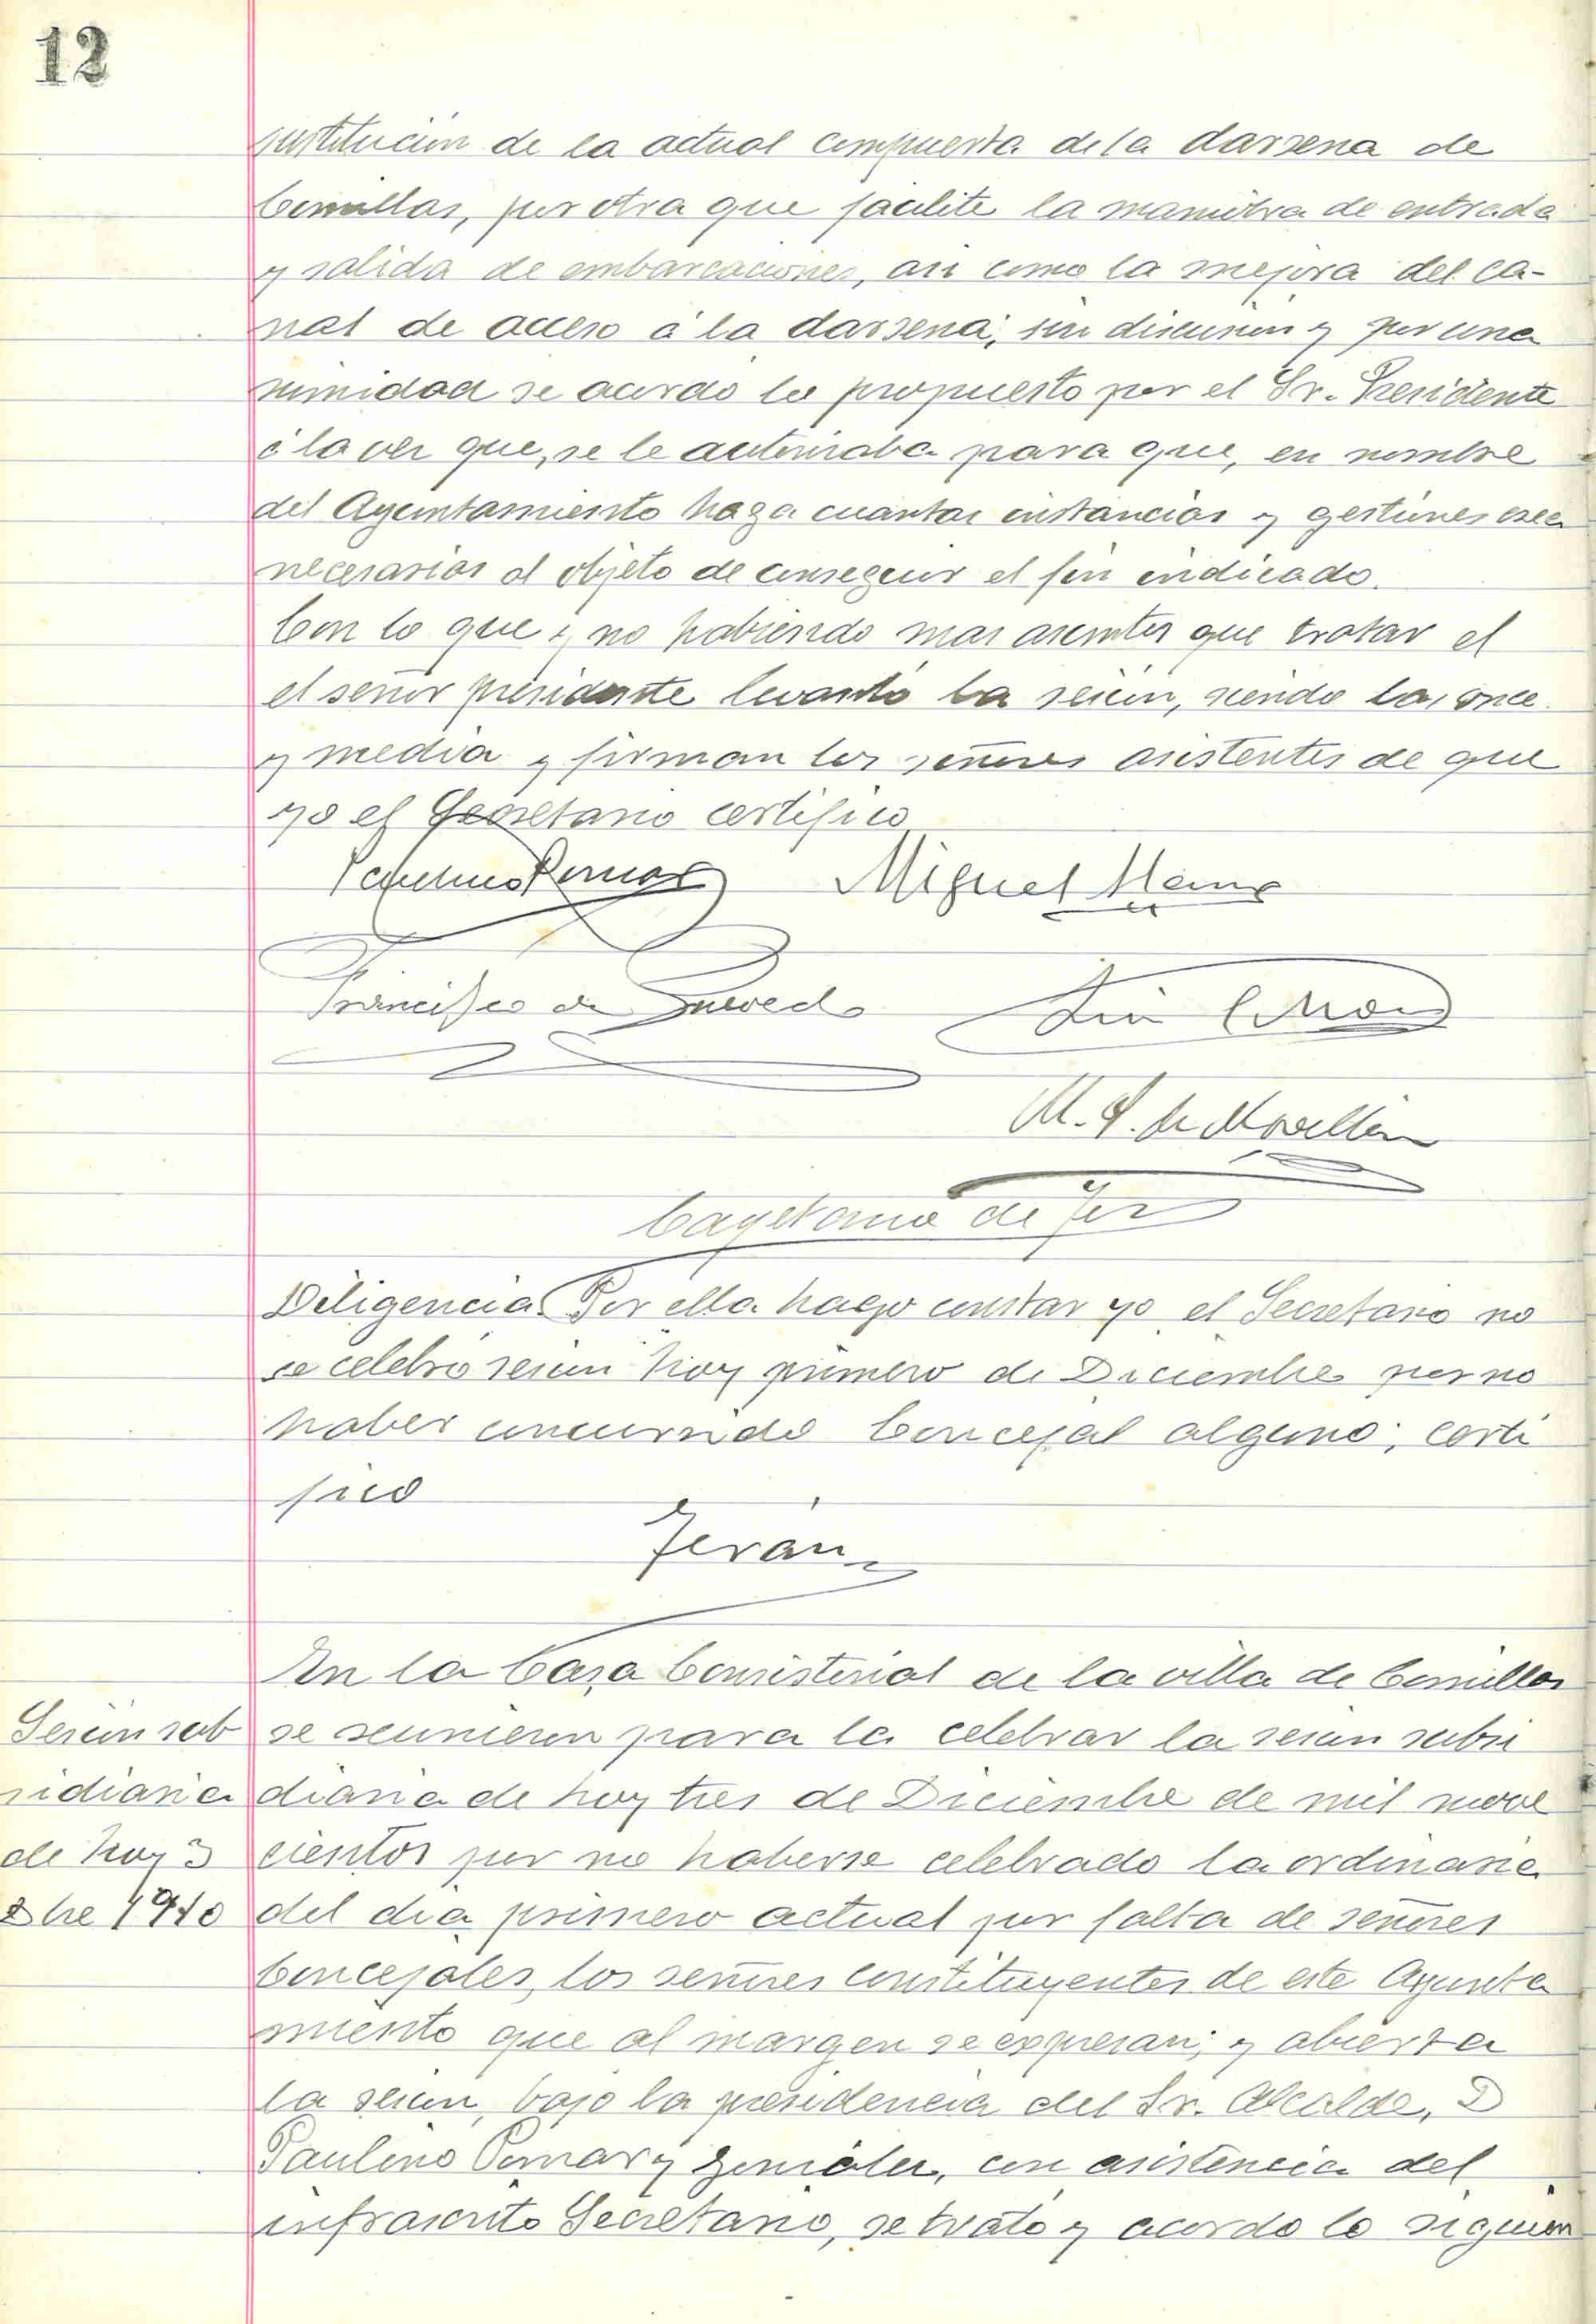 12
sustitucion de la actual compuerta de la darsena de
Comillas, por otra que facilite la maniobra de entrada
y salida de embarcaciones, asi como la mejora del ca-
nal de acceso á la darsena; sin discusion y por una
nimidad se acordó lo propuesto por el Sr. Presidente
á la vez que, se le autorizaba para que, en nombre
del Ayuntamiento haga cuantas instancias y gestiones crea
necesarias al objeto de conseguir el fin indicado.
Con lo que y no habiendo mas asuntos que tratar el
el señor presidente levantó la sesion, siendo las once
y media y firman los señores asistentes de que
yo el Secretario certifico
Paulino Pomar Miguel
Francisco de Quevedo
M. S. de Movellan
Cayetano de Terán
Diligencia Por ella hago constar yo el Secretario no
se celebró sesion hoy primero de Diciembre por no
haber concurrido Concejal alguno; certi
fico
Terán
En la Casa Consistorial de la villa de Comillas
Sesion sub
se reunieron para la celebrar la sesion subsi
sidiaria
diaria de hoy tres de Diciembre de mil nove
de hoy 3
cientos por no haberse celebrado la ordinaria
Dbre 1910
del dia primero actual por falta de señores
Concejales, los señores constituyentes de este Ayunta
miento que al margen se expresan; y abierta
la sesion, bajo la presidencia del Sr. Alcalde, D
Paulino Pomar y González, con asistencia del
infrascrito Secretario, se trató y acordó lo siguien